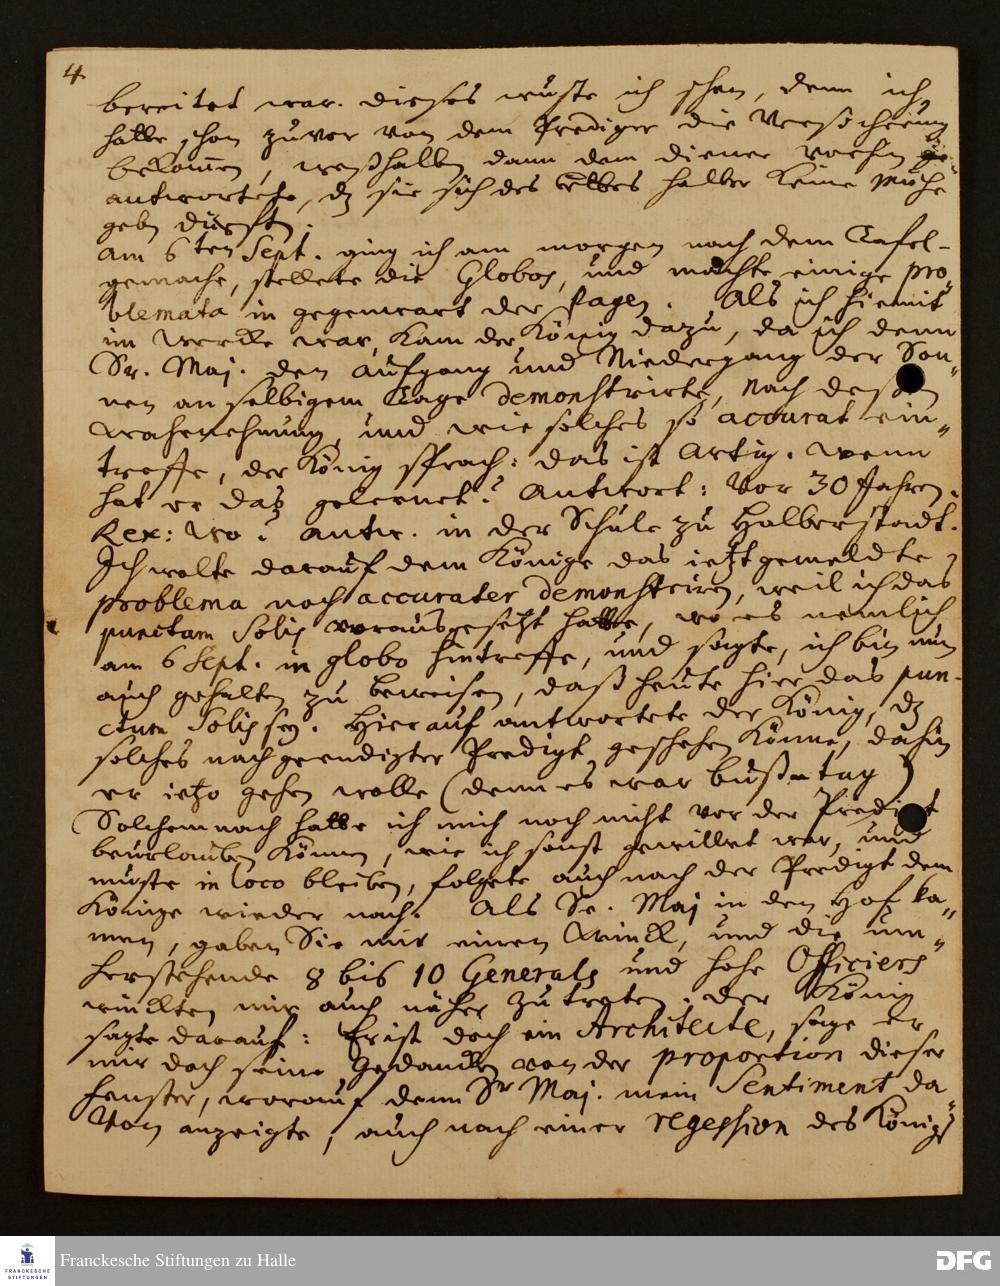 4.
bereitet war. dieses wuste ich schon, denn ich
hatte schon zuvor von dem Prediger die Versicherung
bekom̄en, weßhalben dann dem diener
antwortete, dz sie sich des halber keine Mühe
geben dürften.
Am 6ten Sept. ging ich am morgen nach dem Tafel-
gemache, stellete die Globos, und machte einige pro
blemata in gegenwart der Pagen. Als ich hiemit
im Wercke war, kam der König dazu, da ich denn
Sr. Maj. den Aufgang und Niedergang der Son„
nen an selbigem Tage demonstrirte, Nach deßen
Wahrnehmung, und wie solches so accurat ein„
treffe, der König sprach: das ist Artig. Wenn
hat er daß gelernet? Antwort: Vor 30 Jahren.
Rex: Wo? Antw. in der Schule zu Halberstadt.
Ich wolte darauf dem Könige das ietzt gemeldte
problema noch accurater demonstriren, weil ich das
punctum Solis vorausgesetzt hatte, wo es nemlich
am 6 Sept. in globo hintreffe, und sagte, ich bin nun
auch gehalten zu beweisen, daß heute hier das pun-
ctum Solis sey. Hierauf antwortete der König, dz
solches nach geendigter Predigt geschehen könne, dahin
er ietzo gehen wolle (denn es war Buß-tag)
Solchemnach hatte ich mich noch nicht vor der Predigt
beurlauben können, wie ich sonst gewillet war, und
muste in loco bleiben, folgete auch nach der Predigt dem
Könige wieder nach. Als Sr. Maj in den Hof ka„
men, gaben Sie mir einen Winck, und die um„
herstehende 8 bis 10 Generals und hohe Officiers
winckten mir auch näher zu treten. der König
sagte darauf: Er ist doch ein Architecte, sage er
mir doch seine Gedancken von der proportion dieser
Fenster, worauf denn Sr Maj. mein Sentiment da
Von anzeigte, auch nach einer regession des Königs
Franckesche Stiftungen zu Halle
FRANCKESCHE
STIFTUNGEN
DFG